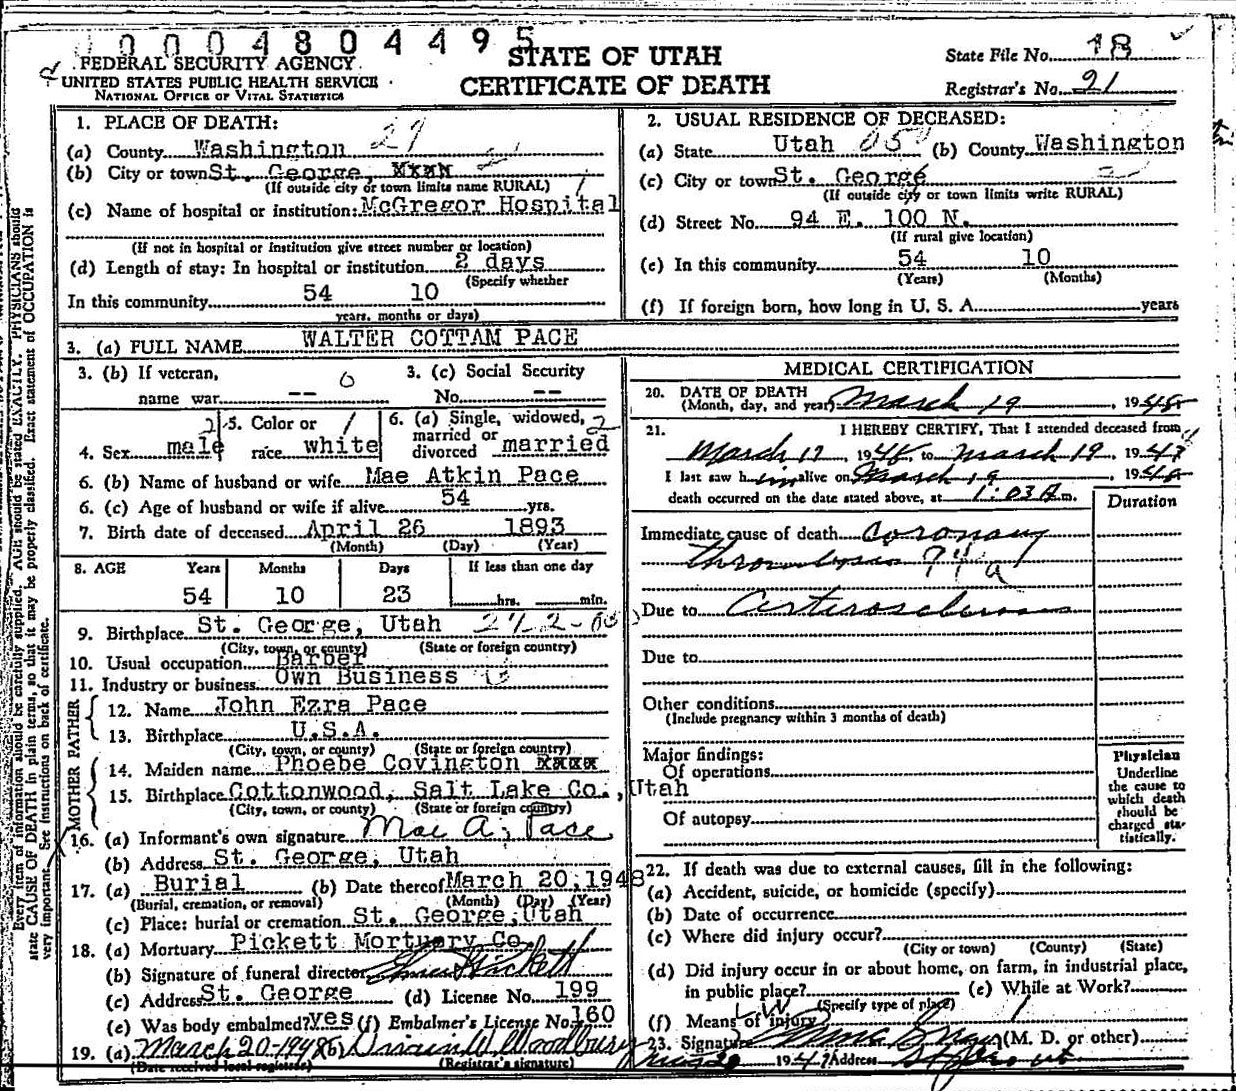 0000 4804495
STATE OF UTAH
CERTIFICATE OF DEATH
FEDERAL SECURITY AGENCY
UNITED STATES PUBLIC HEALTH SERVICE
NATIONAL OFFICE OF VITAL STATISTICS
State File No. 18
Registrar's No. 21
Every item of information should be carefully supplied. AGE should be stated EXACTLY. PHYSICIANS should
state CAUSE OF DEATH in plain terms, so that it may be properly classified. Exact statement of OCCUPATION is
very important. See instructions on back of certificate.
1. PLACE OF DEATH: 27
(a) County Washington
(b) City or town St. George, xxxx
(If outside city or town limits name RURAL)
(c) Name of hospital or institution: McGregor Hospital
(If not in hospital or institution give street number or location)
(d) Length of stay: In hospital or institution 2 days
(Specify whether
In this community 54 10
years, months or days)
2. USUAL RESIDENCE OF DECEASED:
(a) State Utah 05 (b) County Washington
(c) City or town St. George
(If outside city or town limits write RURAL)
(d) Street No. 94 E. 100 N.
(If rural give location)
(e) In this community 54 10
(Years) (Months)
(f) If foreign born, how long in U. S. A. years
3. (a) FULL NAME WALTER COTTAM PACE
3. (b) If veteran, 0
name war -- 
3. (c) Social Security
No. --
4. Sex male 2
5. Color or 1
race white
6. (a) Single, widowed, 2
married or
divorced married
6. (b) Name of husband or wife Mae Atkin Pace
6. (c) Age of husband or wife if alive 54 yrs.
7. Birth date of deceased April 26 1893
(Month) (Day) (Year)
8. AGE Years Months Days If less than one day
54 10 23 hrs. min.
9. Birthplace St. George, Utah
(City, town, or county) (State or foreign country)
10. Usual occupation Barber
11. Industry or business Own Business
FATHER
12. Name John Ezra Pace
13. Birthplace U.S.A.
(City, town, or county) (State or foreign country)
MOTHER
14. Maiden name Phoebe Covington xxxx
15. Birthplace Cottonwood, Salt Lake Co., Utah
(City, town, or county) (State or foreign country)
16. (a) Informant's own signature Mae A. Pace
(b) Address St. George, Utah
17. (a) Burial (b) Date thereof March 20, 1948
(Burial, cremation, or removal) (Month) (Day) (Year)
(c) Place: burial or cremation St. George, Utah
18. (a) Mortuary Pickett Mortuary Co.
(b) Signature of funeral director Pickett
(c) Address St. George (d) License No. 199
(e) Was body embalmed? yes (f) Embalmer's License No. 160
19. (a) March 20-1948 (b) Woodbury
(Date received local registrar) (Registrar's signature)
MEDICAL CERTIFICATION
20. DATE OF DEATH
(Month, day, and year) March 19, 1948
21. I HEREBY CERTIFY, That I attended deceased from
March 17, 1948, to March 19, 1948
I last saw him alive on March 19, 1948
death occurred on the date stated above, at 1:03 A m.
Duration
Immediate cause of death Coronary
thrombosis 94a
Due to Arteriosclerosis
Due to
Other conditions
(Include pregnancy within 3 months of death)
Major findings:
Of operations
Of autopsy
Physician
Underline
the cause to
which death
should be
charged sta-
tistically.
22. If death was due to external causes, fill in the following:
(a) Accident, suicide, or homicide (specify)
(b) Date of occurrence
(c) Where did injury occur?
(City or town) (County) (State)
(d) Did injury occur in or about home, on farm, in industrial place,
in public place? (e) While at Work?
(Specify type of place)
(f) Means of injury
23. Signature (M. D. or other)
19 Address